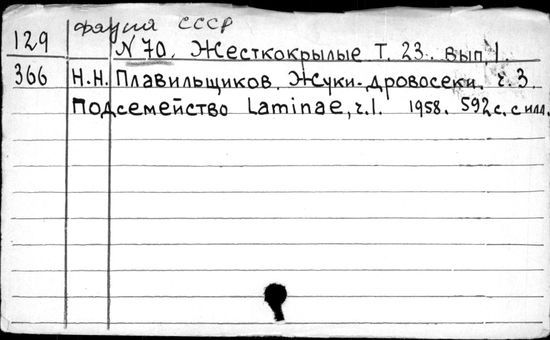 фауна СССР
129 N 70. Жесткокрылые Т. 23. вып. 1.
366 Н.Н. Плавильщиков. Жуки-дровосеки. ч. 3.
Подсемейство Laminae, ч.1. 1958. 592 с. с илл.